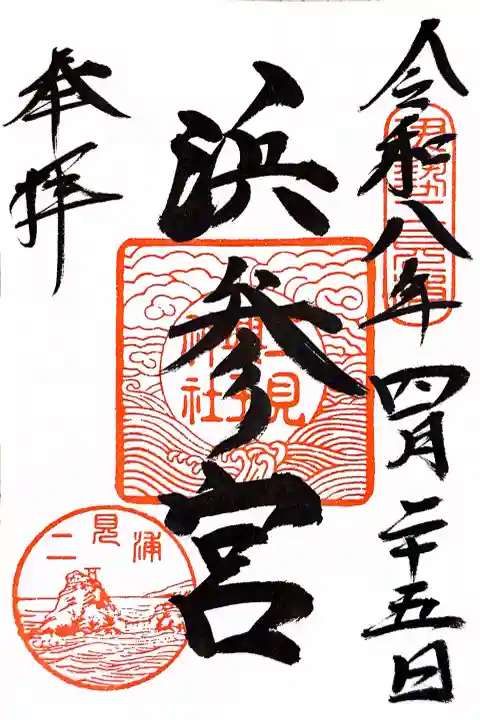 令和八年四月二十五日
伊勢二見浦
浜参宮
二見
興玉
神社
奉拝
二見浦